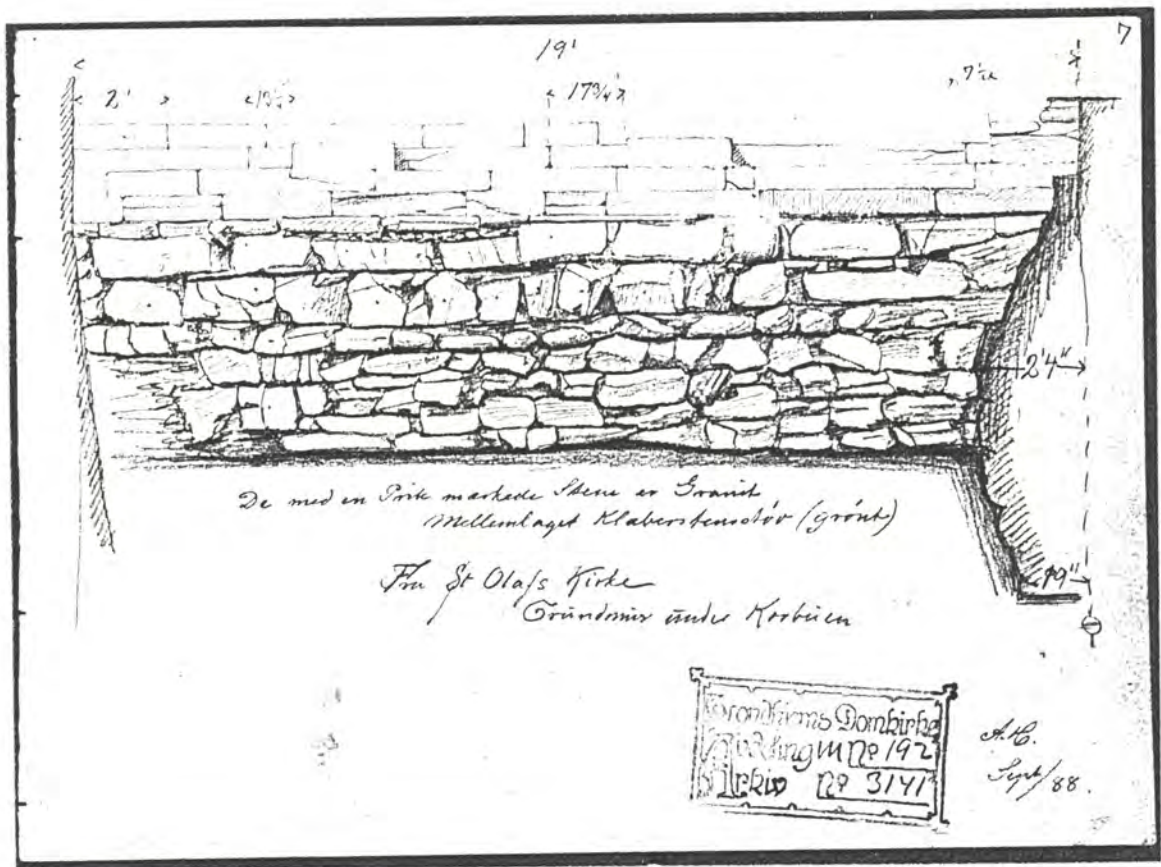 7
19'
2'
13½"
17¾"
7½"
2'4"
De med en Prik mærkede Stene er Granit
Mellemlaget Klæberstensstøv (grønt)
Fra St Olafs Kirke
Grundmur under Korbuen
19"
Trondhjems Domkirke
M No 192
Arkiv No 3141
A.C.
Sept/88.